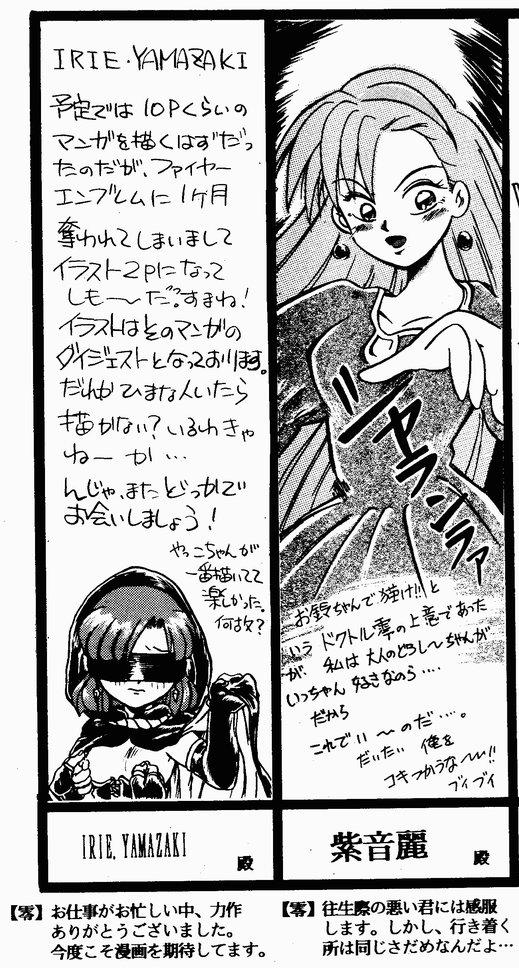 IRIE・YAMAZAKI
予定では10Pくらいの
マンガを描くはずだっ
たのだが、ファイヤー
エンブレムに1ケ月
奪われてしまいまして
イラスト2Pになって
しも〜〜だ?すまね!
イラストはそのマンガの
ダイジェストとなっております。
だれか ひまな人いたら
描かない?いるわきゃ
ねーか…
んじゃ、またどっかで
お会いしましょう!
やっこちゃんが
一番描いてて
楽しかった。
何故?
IRIE.YAMAZAKI
殿
【零】お仕事がお忙しい中、力作
ありがとうございました。
今度こそ漫画を期待してます。
ジャランラァ
お鈴ちゃんで抜け!!と
いう ドクトル零の上意であった
が、私は大人のどろし〜ちゃんが
いっちゃん 好きなのら‥‥
だから
これでい〜のだ…。
だいたい 俺を
コキつかうな〜!!
ブイブイ
紫音麗
殿
【零】往生際の悪い君には感服
します。しかし、行き着く
所は同じさだめなんだよ…